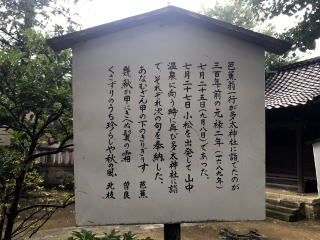 芭蕉翁一行が多太神社に詣でたのが
三百年前の元禄二年(一六八九年)
七月二十五日(九月八日)であった。
七月二十七日小松を出発して山中
温泉に向う時に再び多太神社に詣
で、それぞれ次の句を奉納した。
あなむざん甲の下のきりぎりす 芭蕉
幾秋か甲にきへぬ鬢の霜 曽良
くさずりのうら珍らしや秋の風 北枝